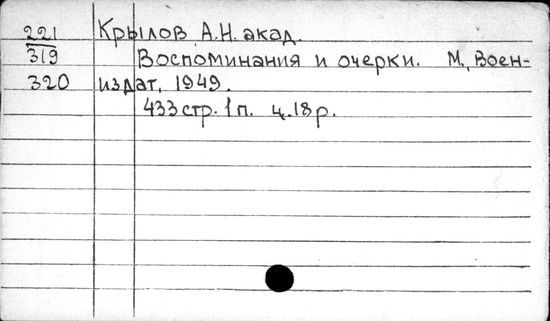 221 Крылов А.Н. акад.
319 Воспоминания и очерки. М, Воен-
320 издат, 1949.
433 стр. 1 п. ц. 18 р.